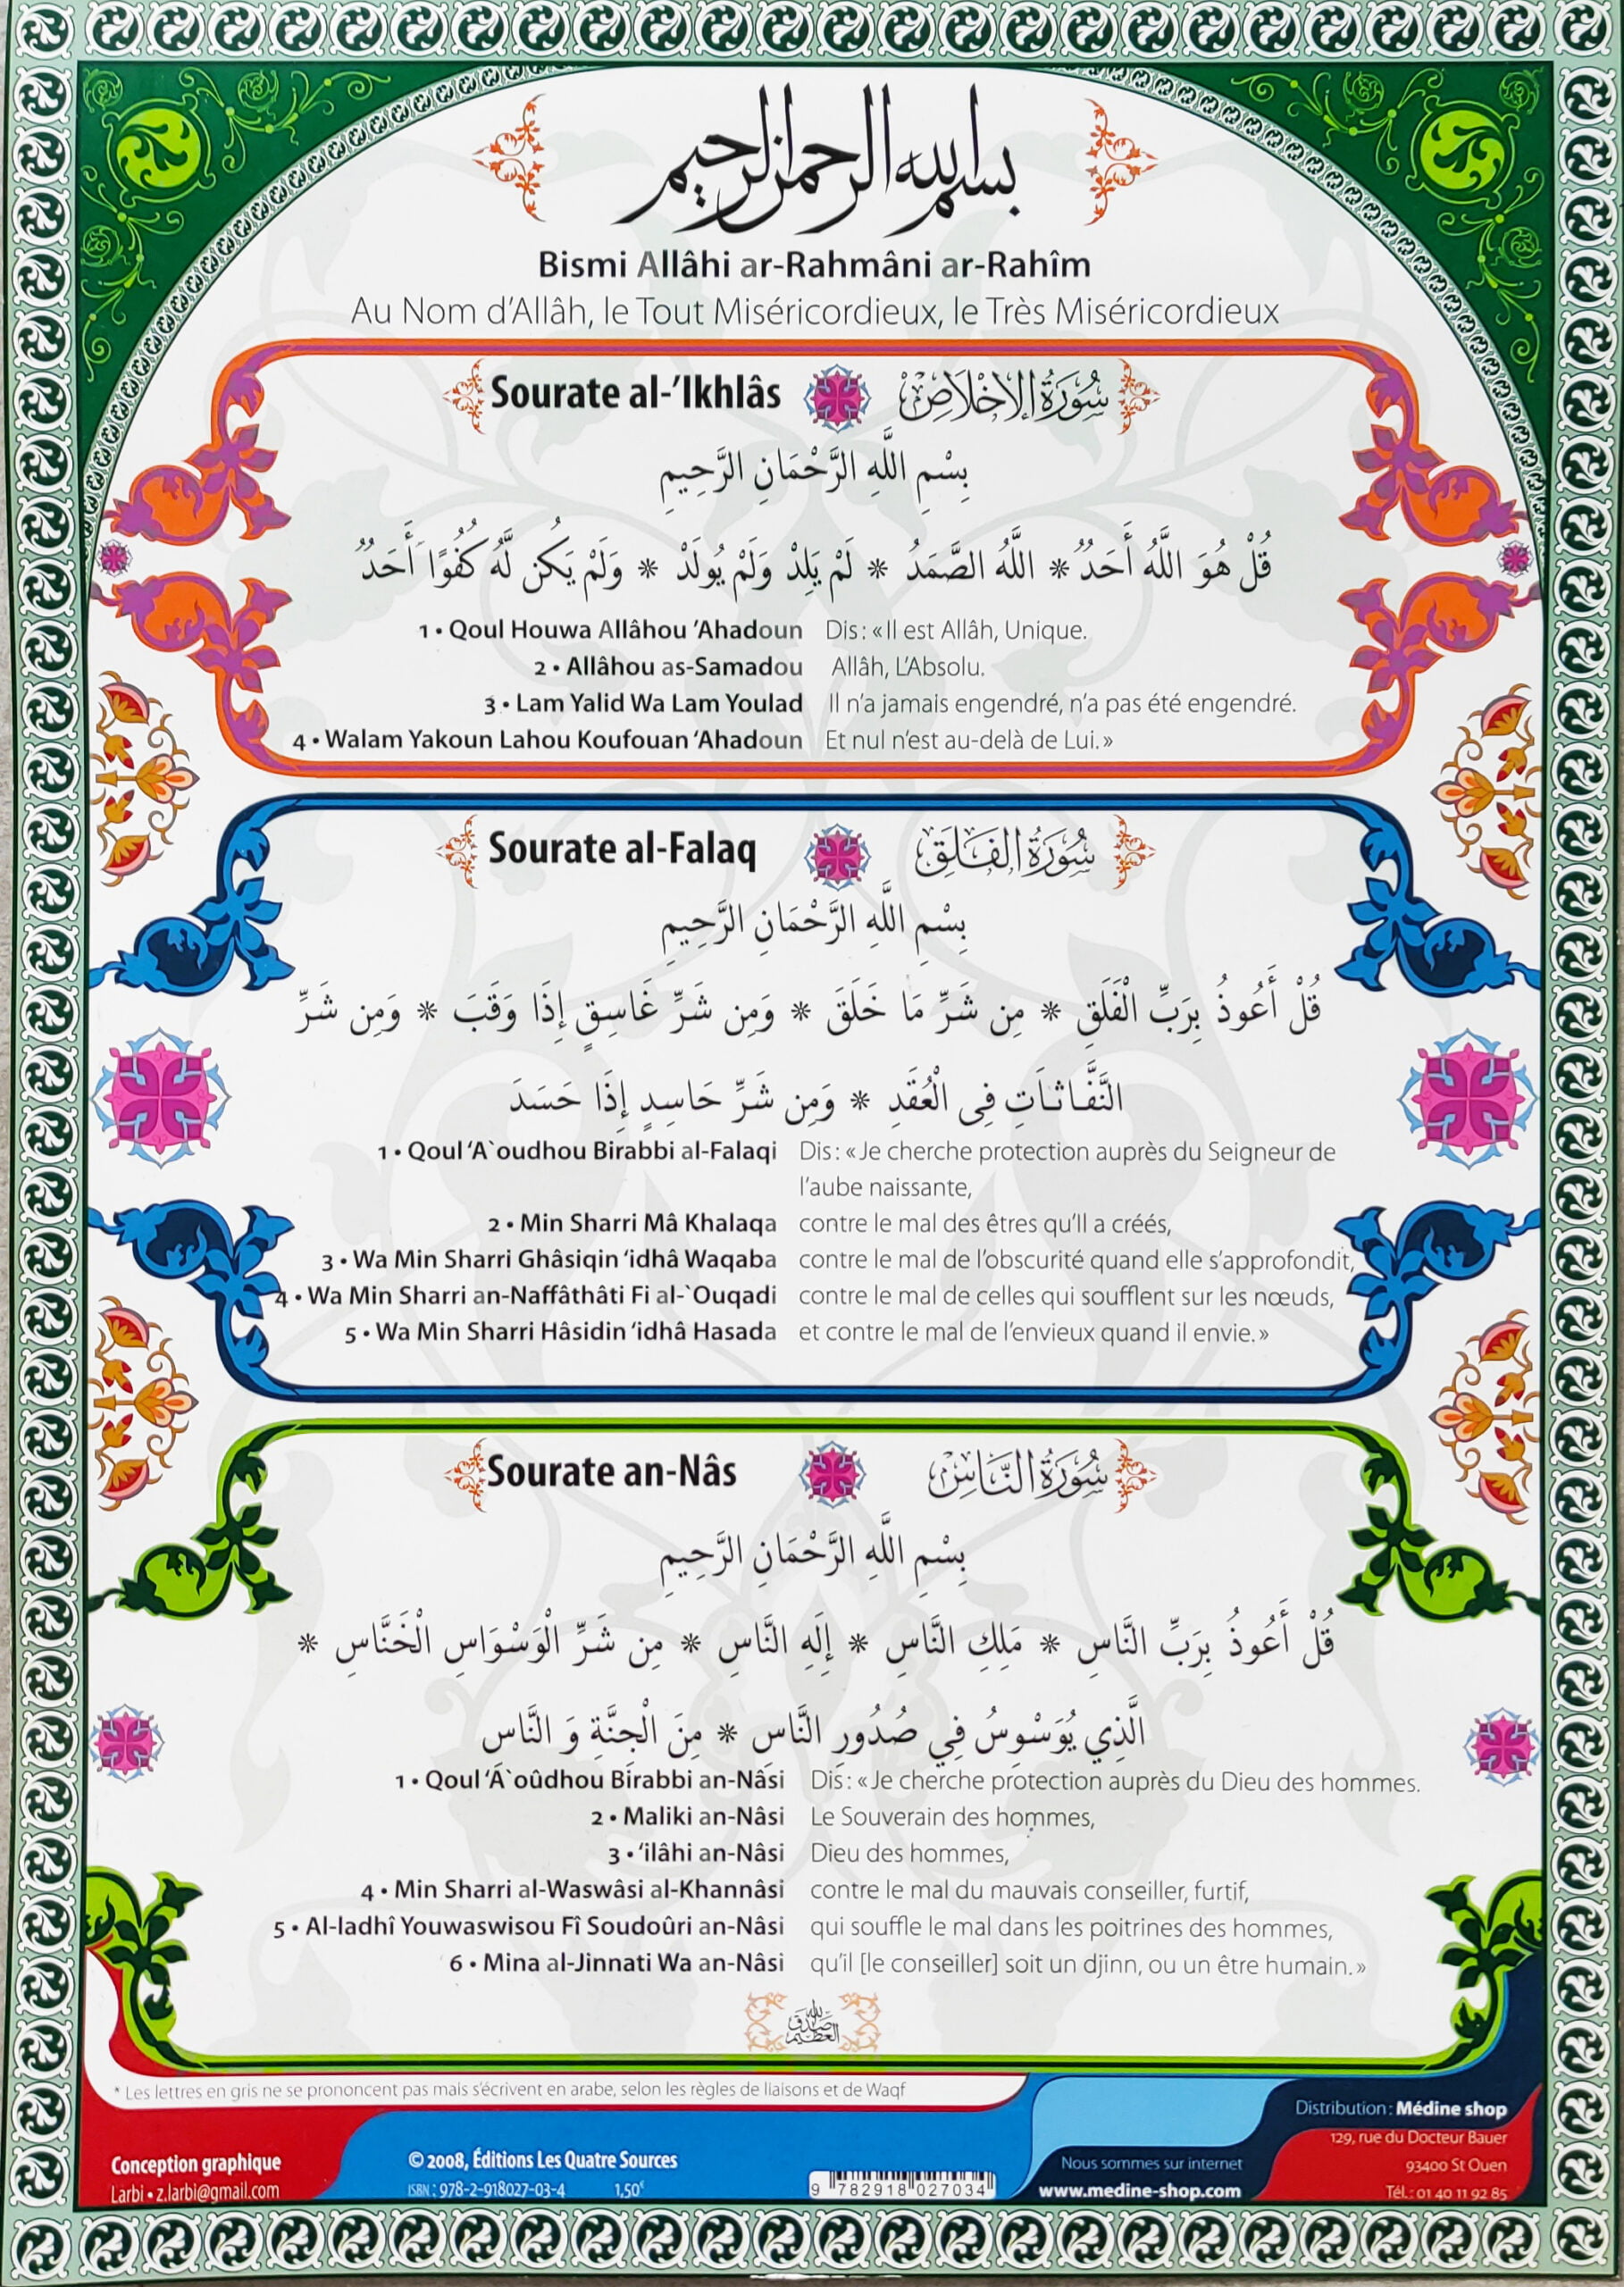 بسم الله الرحمن الرحيم
Bismi Allâhi ar-Rahmâni ar-Rahîm
Au Nom d’Allâh, le Tout Miséricordieux, le Très Miséricordieux
Sourate al-’Ikhlâs سُورَةُ الإِخْلَاصِ
بِسْمِ اللَّهِ الرَّحْمَانِ الرَّحِيمِ
قُلْ هُوَ اللَّهُ أَحَدٌ * اللَّهُ الصَّمَدُ * لَمْ يَلِدْ وَلَمْ يُولَدْ * وَلَمْ يَكُن لَّهُ كُفُوًا أَحَدٌ
1 • Qoul Houwa Allâhou ’Ahadoun Dis : « Il est Allâh, Unique.
2 • Allâhou as-Samadou Allâh, L’Absolu.
3 • Lam Yalid Wa Lam Youlad Il n’a jamais engendré, n’a pas été engendré.
4 • Walam Yakoun Lahou Koufouan ‘Ahadoun Et nul n’est au-delà de Lui. »
Sourate al-Falaq سُورَةُ الفَلَقِ
بِسْمِ اللَّهِ الرَّحْمَانِ الرَّحِيمِ
قُلْ أَعُوذُ بِرَبِّ الْفَلَقِ * مِن شَرِّ مَا خَلَقَ * وَمِن شَرِّ غَاسِقٍ إِذَا وَقَبَ * وَمِن شَرِّ
النَّفَّاثَاتِ فِى الْعُقَدِ * وَمِن شَرِّ حَاسِدٍ إِذَا حَسَدَ
1 • Qoul ‘A`oudhou Birabbi al-Falaqi Dis : « Je cherche protection auprès du Seigneur de
l’aube naissante,
2 • Min Sharri Mâ Khalaqa contre le mal des êtres qu’Il a créés,
3 • Wa Min Sharri Ghâsiqin ‘idhâ Waqaba contre le mal de l’obscurité quand elle s’approfondit,
4 • Wa Min Sharri an-Naffâthâti Fi al-`Ouqadi contre le mal de celles qui soufflent sur les nœuds,
5 • Wa Min Sharri Hâsidin ‘idhâ Hasada et contre le mal de l’envieux quand il envie. »
Sourate an-Nâs سُورَةُ النَّاسِ
بِسْمِ اللَّهِ الرَّحْمَانِ الرَّحِيمِ
قُلْ أَعُوذُ بِرَبِّ النَّاسِ * مَلِكِ النَّاسِ * إِلَهِ النَّاسِ * مِن شَرِّ الْوَسْوَاسِ الْخَنَّاسِ *
الَّذِي يُوَسْوِسُ فِي صُدُورِ النَّاسِ * مِنَ الْجِنَّةِ وَ النَّاسِ
1 • Qoul ‘A`oûdhou Birabbi an-Nâsi Dis : « Je cherche protection auprès du Dieu des hommes.
2 • Maliki an-Nâsi Le Souverain des hommes,
3 • ‘ilâhi an-Nâsi Dieu des hommes,
4 • Min Sharri al-Waswâsi al-Khannâsi contre le mal du mauvais conseiller, furtif,
5 • Al-ladhî Youwaswisou Fî Soudoûri an-Nâsi qui souffle le mal dans les poitrines des hommes,
6 • Mina al-Jinnati Wa an-Nâsi qu’il [le conseiller] soit un djinn, ou un être humain. »
صدق الله العظيم
* Les lettres en gris ne se prononcent pas mais s’écrivent en arabe, selon les règles de liaisons et de Waqf
Conception graphique
Larbi • z.larbi@gmail.com
© 2008, Éditions Les Quatre Sources
ISBN : 978-2-918027-03-4 1,50€
9 782918 027034
Nous sommes sur internet
www.medine-shop.com
Distribution : Médine shop
129, rue du Docteur Bauer
93400 St Ouen
Tél. : 01 40 11 92 85